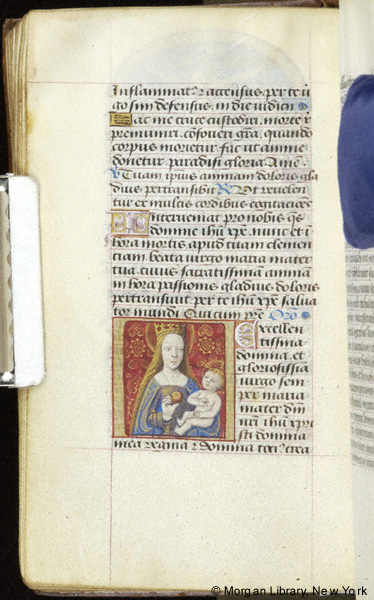 Inflammat⁊ ⁊ accensus. per te ũ
go sim defensus. in die iudicii
Fac me cruce custodiri. morte x̃
premuniri. confoueri gr̃a. quando
corpus morietur fac ut anime
donetur paradisi gloria. Ame.
V Tuam ipsius animam doloris gla
dius pertransibit R Vt reuelen
tur ex multis cordibus cogitacõe
Interueniat pro nobis q̃s
domine ihũ xp̃e. nunc et ĩ
hora mortis apud tuam clemen
ciam beata uirgo maria mater
tua cuius sacratissimã animã
in hora passionis gladius doloris
pertransiuit per te ihũ xp̃e salua
tor mundi. Qui cum pr̃e. Oro
Excellen
tissima
domina. et
gloriosissia
uirgo sem
per maria
mater dñi
nr̃i ihũ xp̃i
sti domina
mea regina ⁊ domina toci⁊
© Morgan Library, New York